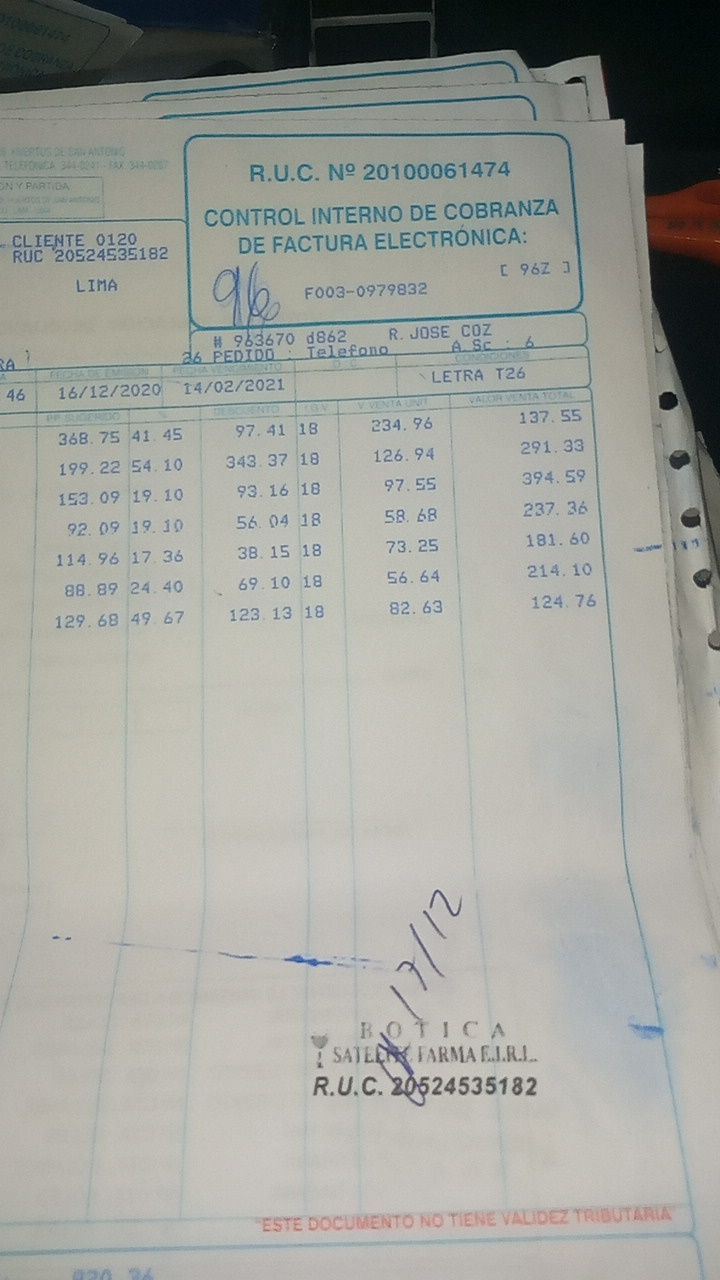 20100061474
HUERTOS DE SAN ANTONIO
R.U.C. Nº 20100061474
CONTROL INTERNO DE COBRANZA
DE FACTURA ELECTRÓNICA:
[ 96Z ]
F003-0979832
CLIENTE 0120
RUC 20524535182
LIMA
# 963670 d862 R. JOSE COZ
26 PEDIDO : Telefono A Sc : 6
FECHA DE EMISION FECHA VENCIMIENTO CONDICIONES
46 16/12/2020 14/02/2021 LETRA T26
PP SUGERIDO % DESCUENTO I.G.V. V.VENTA UNIT VALOR VENTA TOTAL
368.75 41.45 97.41 18 234.96 137.55
199.22 54.10 343.37 18 126.94 291.33
153.09 19.10 93.16 18 97.55 394.59
92.09 19.10 56.04 18 58.68 237.36
114.96 17.36 38.15 18 73.25 181.60
88.89 24.40 69.10 18 56.64 214.10
129.68 49.67 123.13 18 82.63 124.76
17/12
BOTICA
SATELITE FARMA E.I.R.L.
R.U.C. 20524535182
"ESTE DOCUMENTO NO TIENE VALIDEZ TRIBUTARIA"